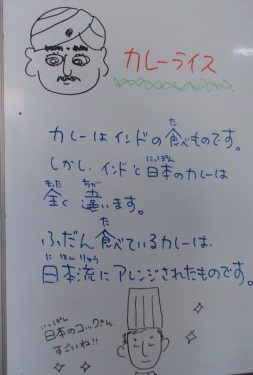 カレーライス
カレーはインドの食べものです。
しかし、インドと日本のカレーは
全く違います。
ふだん食べているカレーは、
日本流にアレンジされたものです。
日本のコックさん
すごいね!!